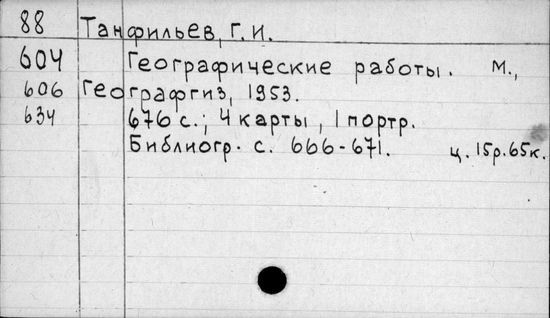 88 Танфильев, Г. И.
604 Географические работы. М.,
606 Географгиз, 1953.
634 676 с.; 4 карты, 1 портр.
Библиогр. с. 666-671. ц. 15р.65к.